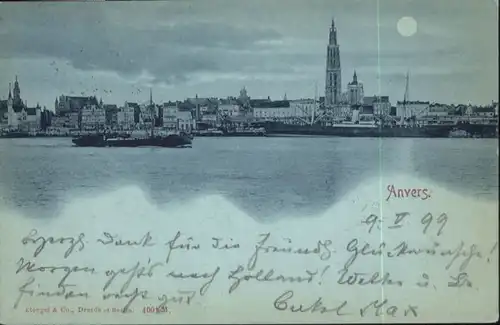 Anvers.
9-V 99
Herzl. Dank für die Freundl. Glückwünsche!
Morgen geht's nach Holland! Wethe u. Du
finden recht gut
Onkel Max
Stengel & Co., Dresde et Berlin. 10018.